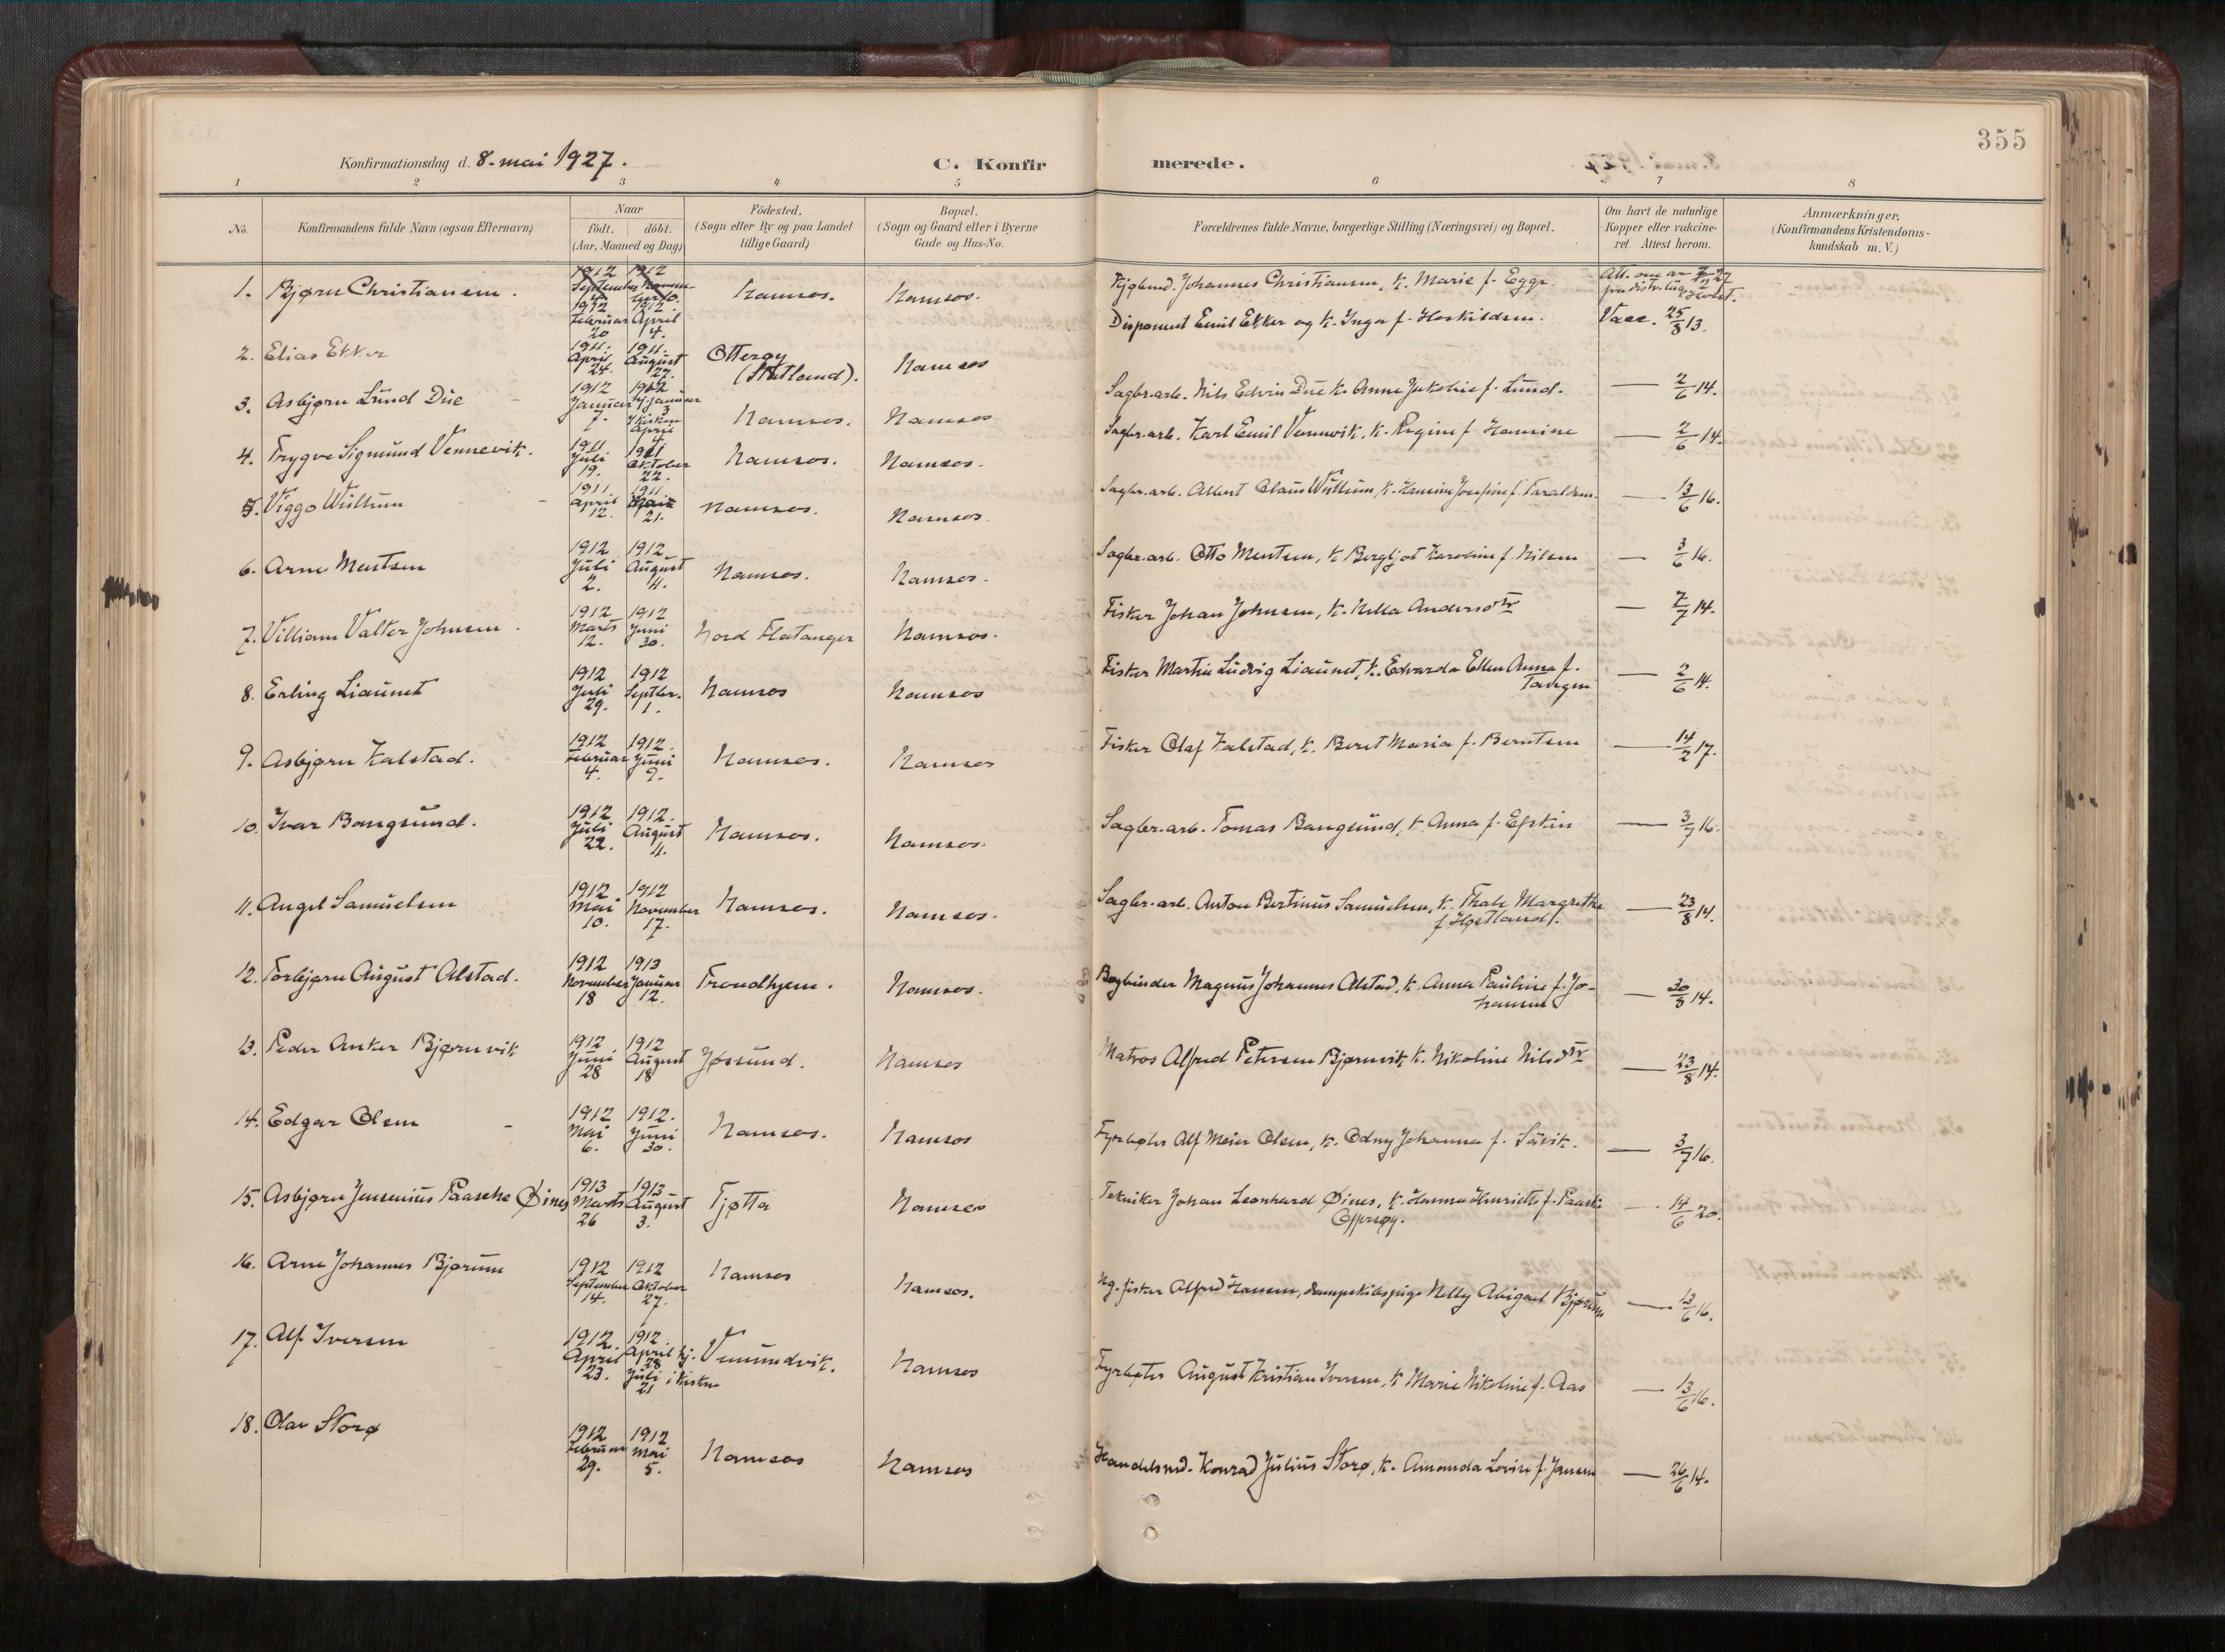 355
Konfirmationsdag d. 8. mai 1927.
C. Konfirmerede.
1 2 3 4 5 6 7 8
No.
Konfirmandens fulde Navn (ogsaa Efternavn)
Naar
født. døbt.
(Aar, Maaned og Dag)
Födested.
(Sogn eller By og paa Landet
tillige Gaard)
Bopæl.
(Sogn og Gaard eller i Byerne
Gade og Hus-No.
Forældrenes fulde Navne, borgerlige Stilling (Næringsvei) og Bopæl.
Om havt de naturlige
Kopper eller vakcine-
ret. Attest herom.
Anmærkninger.
(Konfirmandens Kristendoms-
kundskab m. V.)
1. Bjørn Christiansen. Namsos. Namsos.
Johannes Christiansen, k. Marie f. Egge.
2. Elias Ekker 1912 Februar 20 1912 April 4. Namsos
Disponent Emil Ekker og k. Inga f. Hoskildsen. Vacc. 25/8 13.
3. Asbjørn Lund Due 1911. April 24. 1911. August 27. Otterøy
(Statland). Namsos
Sagbr.arb. Nils Edvin Due k. Anna Jakobie f. Lund. — 2/6 14.
4. Trygve Sigmund Vennevik. 1911 Juli 19. 1911 Oktober 22. Namsos. Namsos.
Sagbr.arb. Karl Emil Vennevik, k. Regine f. Hansine — 2/6 14.
5. Viggo Willum 1911 April 12. 1911 21. Namsos. Namsos.
Sagbr.arb. Albert Claus Willum, k. Hansine Josefine f. Faraldsen. — 13/6 16.
6. Arne Mentsen 1912 Juli 2. 1912. August 4. Namsos. Namsos.
Sagbr.arb. Otto Mentsen, k. Bergljot Karoline f. Nilsen — 3/6 16.
7. Villiam Valter Johnsen. 1912 Marts 12. 1912 Juni 30. Nord Flatanger Namsos.
Fisker Johan Johnsen, k. Nella Andersdtr — 7/7 14.
8. Erling Liaunet 1912 Juli 29. 1912 Septbr. 1. Namsos Namsos
Fisker Martin Ludvig Liaunet, k. Edvarda Ellen Anna f.
Tangen — 2/6 14.
9. Asbjørn Kalstad. 1912 Februar 4. 1912. Juni 9. Namsos. Namsos
Fisker Olaf Kalstad, k. Beret Maria f. Berntsen — 14/2 17.
10. Ivar Bangsund. 1912 Juli 22. 1912. August 4. Namsos. Namsos.
Sagbr.arb. Tomas Bangsund, k. Anna f. Efskin — 3/7 16.
11. Angel Samuelsen 1912 Mai 10. 1912 November 17. Namsos. Namsos.
Sagbr.arb. Anton Bertinus Samuelsen, k. Thale Margrethe
f. Høstland. — 23/8 14.
12. Torbjørn August Alstad. 1912 November 18 1913 Januar 12. Trondhjem. Namsos.
Bogbinder Magnus Johannes Alstad, k. Anna Pauline f. Jo-
hansen — 30/8 14.
13. Peder Anker Bjørnvik 1912 Juni 28 1912 August 18 Jøssund. Namsos
Matros Alfred Petersen Bjørnvik, k. Nikoline Nilsdtr — 23/8 14.
14. Edgar Olsen - 1912 Mai 6. 1912. Juni 30. Namsos. Namsos
Fyrbøter Alf Meier Olsen, k. Odny Johanna f. Sævik. — 3/7 16.
15. Asbjørn Jensenius Paasche Øines 1913 Marts 26 1913 August 3. Tjøtta Namsos
Tekniker Johan Leonhard Øines, k. Hanna Henriette f. Paaske
— 14/6 20.
16. Arne Johannes Bjørum 1912 September 14. 1912 Oktober 27. Namsos Namsos.
Ug. fisker Alfred Hansen, dampskibspige Nelly Abigael Bjørum — 13/6 16.
17. Alf Iversen 1912. April 23. 1912. April hj. 28 Juli i kirken 21 Vemundvik. Namsos
Fyrbøter August Kristian Iversen, k. Marie Nikoline f. Aas — 13/6 16.
18. Olav Storø 1912 Februar 29. 1912 Mai 5. Namsos Namsos
Handelsmd. Konrad Julius Storø, k. Amanda Lovise f. Jansen — 26/6 14.